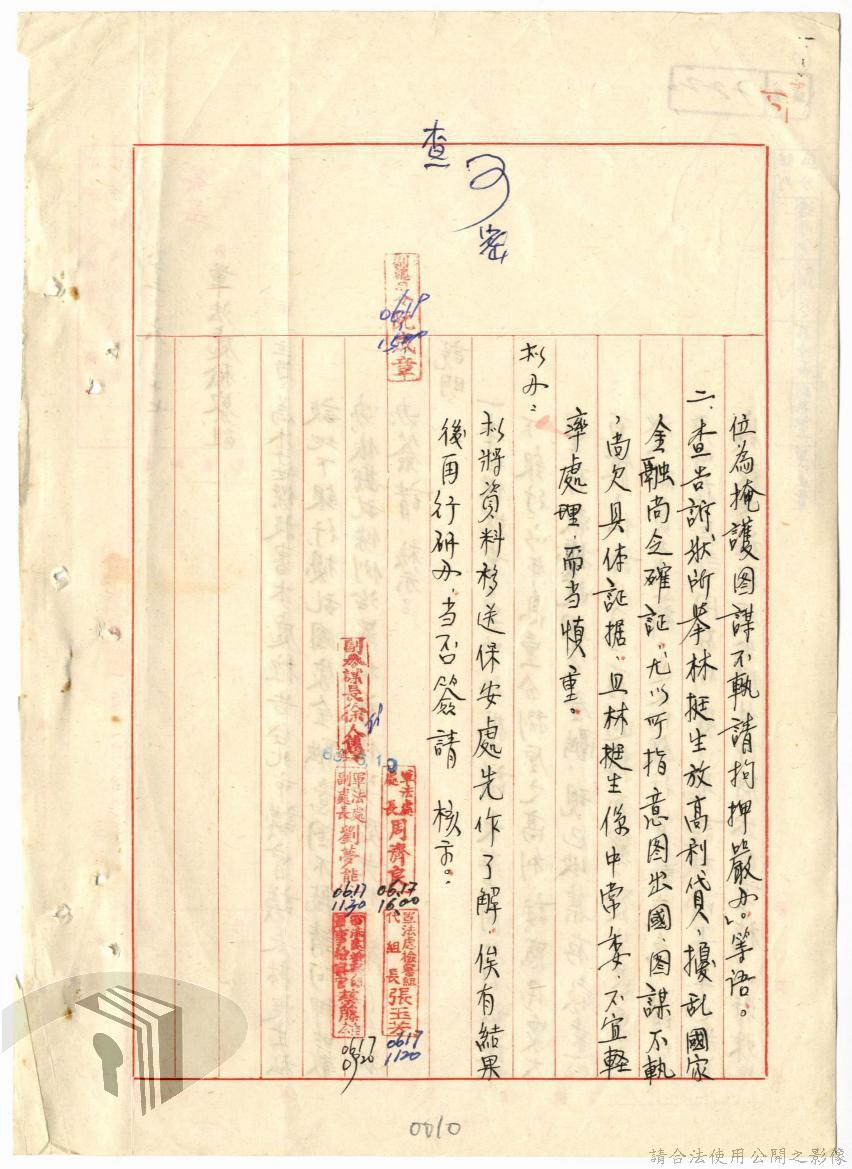 可
查
位為掩護图謀不執請拘押嚴办」。等語。
二、查告訴狀所举林挺生放高利貸，擾乱國家
金融尚乏確証，尤以所指意图出國、图謀不執
，尚欠具体証据，且林挺生係中常委，不宜軽
率處理，而当慎重。
拟办：
拟將資料移送保安處先作了解，俟有結果
後再行研办，当否簽請　核示。
0619
1500
副參謀長徐人雋
軍法處
處長周濟良
0617
1600
軍法處
副處長劉夢能
0617
1130
軍法處檢察組
代組長張玉芳
0617
1120
0617
0920
0010
請合法使用公開之影像